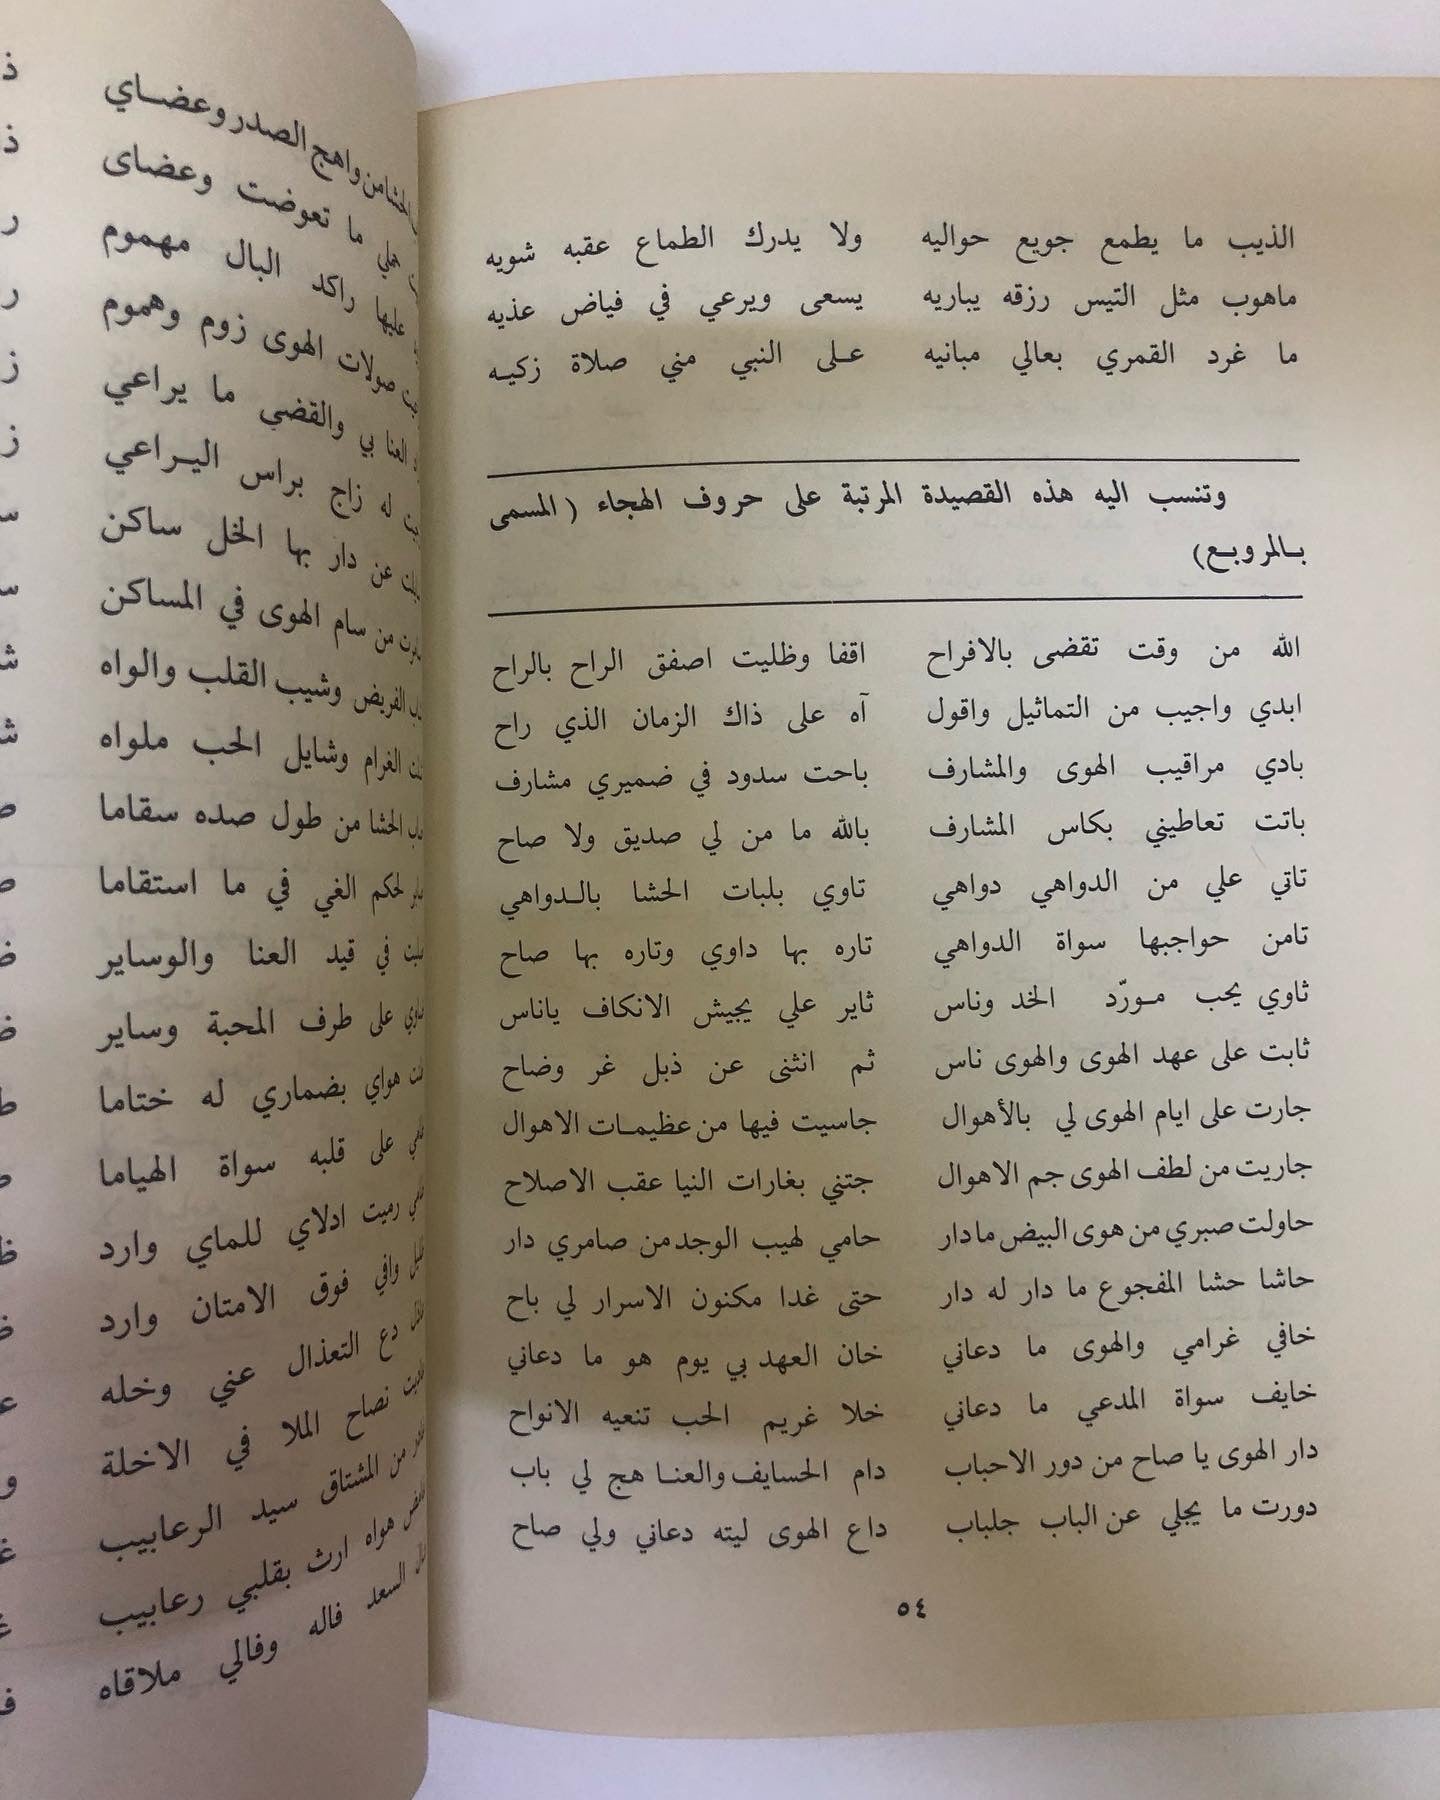 الذيب ما يطمع جويع حواليه ولا يدرك الطماع عقبه شويه
ماهوب مثل التيس رزقه يباريه يسعى ويرعي في فياض عذيه
ما غرد القمري بعالي مبانيه عـلى النبي مني صلاة زكيـه
وتنسب اليه هذه القصيدة المرتبة على حروف الهجاء ( المسمى
بـالمروبـع)
الله من وقت تقضى بالافراح اقفا وظليت اصفق الراح بالراح
ابدي واجيب من التماثيل واقول آه على ذاك الزمان الذي راح
بادي مراقيب الهوى والمشارف باحت سدود في ضميري مشارف
باتت تعاطيني بكاس المشارف بالله ما من لي صديق ولا صاح
تاتي علي من الدواهي دواهي تاوي بلبات الحشا بالـدواهي
تامن حواجبها سواة الدواهي تاره بها داوي وتاره بها صاح
ثاوي يحب مـورّد الخد وناس ثاير علي يجيش الانكاف ياناس
ثابت على عهد الهوى والهوى ناس ثم انثنى عن ذبل غر وضاح
جارت على ايام الهوى لي بالأهوال جاسيت فيها من عظيمـات الاهوال
جاريت من لطف الهوى جم الاهوال جتني بغارات النيا عقب الاصلاح
حاولت صبري من هوى البيض مادار حامي لهيب الوجد من صامري دار
حاشا حشا المفجوع ما دار له دار حتى غدا مكنون الاسرار لي باح
خافي غرامي والهوى ما دعاني خان العهد بي يوم هو ما دعاني
خايف سواة المدعي ما دعاني خلا غريم الحب تنعيه الانواح
دار الهوى يا صاح من دور الاحباب دام الحسايف والعنـا هج لي باب
دورت ما يجلي عن الباب جلباب داع الهوى ليته دعاني ولي صاح
٥٤
واهج الصدر وعضـاي
ما تعوضت وعضاى
عليها راكد البال مهموم
صولات الهوى زوم وهموم
العنا بي والقضى ما يراعي
له زاج براس اليـراعي
عن دار بها الخل ساكن
من سام الهوى في المساكن
الفريض وشيب القلب والواه
الغرام وشايل الحب ملواه
الحشا من طول صده سقاما
لحكم الغي في ما استقاما
في قيد العنا والوساير
على طرف المحبة وساير
هواي بضماري له ختاما
على قلبه سواة الهياما
رميت ادلاي للماي وارد
وافي فوق الامتان وارد
دع التعذال عني وخله
نصاح الملا في الاخلة
من المشتاق سيد الرعابيب
هواه ارث بقلبي رعابيب
السعد فاله وفالي ملاقاه